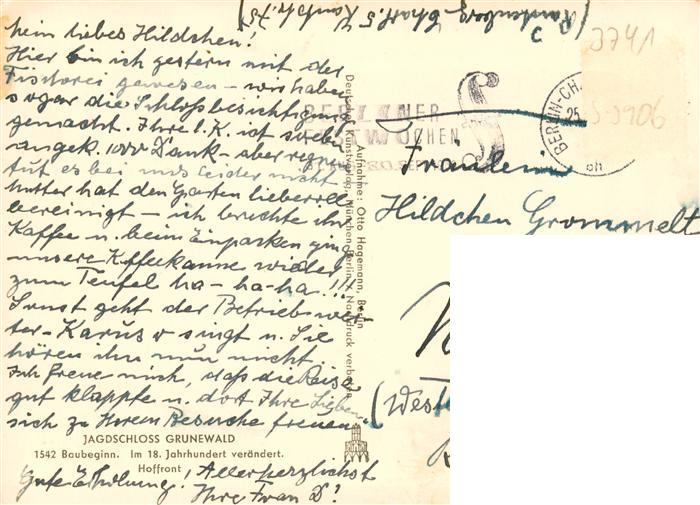 Mein liebes Hildchen!
Hier bin ich gestern mit der
Försterei gewesen – wir haben
sogar die Schloßbesichtigung
gemacht. Ihre l. K. ist
angek. 1000 Dank – aber regnen
tut es bei uns leider nicht
Mutter hat den Garten
bereinigt – ich brachte ihr
Kaffee u. beim Einparken ging
unsere Kaffeekanne wieder
zum Teufel ha-ha-ha!!!
Sonst geht der Betrieb
singt u. Sie
hören ihn nun nicht.
Ich freue mich, daß die Reise
gut klappte u. dort Ihre Lieben
sich zu Ihrem Besuche freuen.
JAGDSCHLOSS GRUNEWALD
1542 Baubeginn. Im 18. Jahrhundert verändert.
Hoffront
Gute Erholung! Allerherzlichst
Ihre Frau D!
Aufnahme: Otto Hagemann, Berlin
Deutscher Kunstverlag, München-Berlin / Nachdruck verboten
Charl. 5 Kantstr. 75
BERLINER
FESTWOCHEN
SEPT
BERLIN-CH
25
3741
S-3906
Fräulein
Hildchen Grommelt
(West